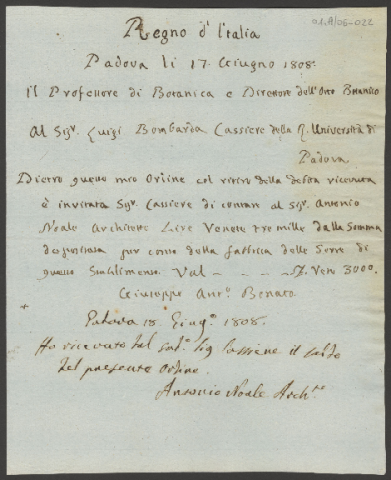 01.A/05-022
Regno d'Italia
Padova li 17. Giugno 1808.
Il Professore di Botanica e Direttore dell'Orto Botanico
Al Sigr. Luigi Bombarda Cassiere della R. Università di
Padova
Dietro questo mio Ordine col ritiro della debita ricevuta
è invitato Sigr. Cassiere di contare al Sigr. Antonio
Noale Architetto Lire Venete tre mille dalla Somma
depositata per conto della fabbrica delle Serre di
questo Stabilimento. Val - - - - L. Vete 3000.
Giuseppe Anto. Bonato
Padova 18. Giugo. 1808.
Ho ricevuto dal sudo. Sig. Cassiere il saldo
del presente Ordine.
Antonio Noale Archto